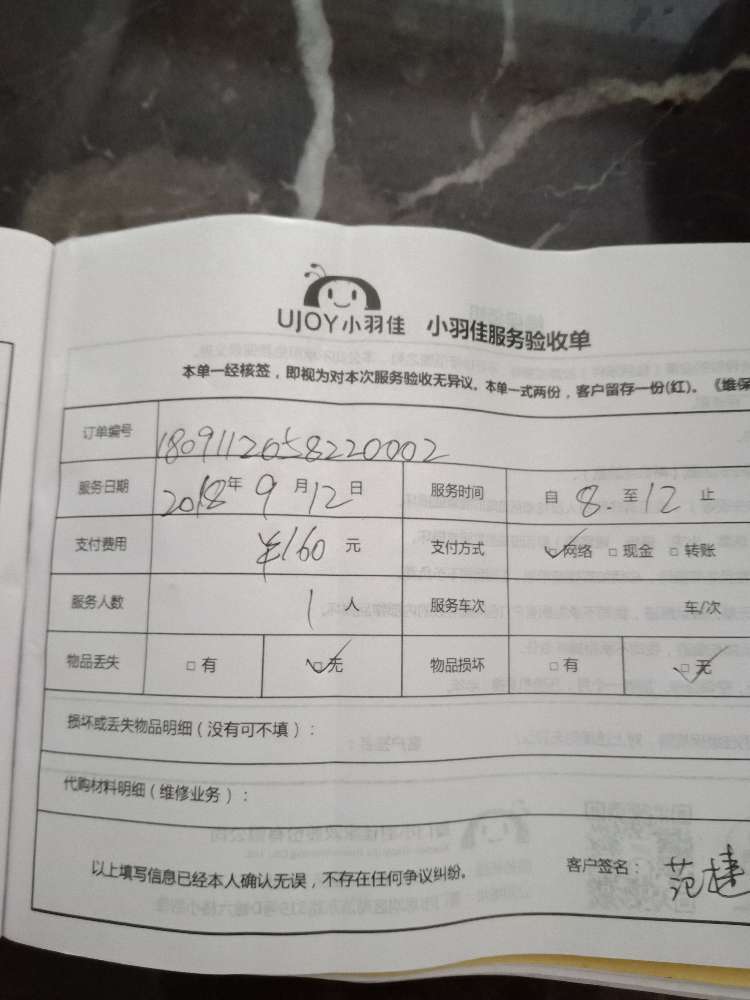 UJOY小羽佳 小羽佳服务验收单
本单一经核签，即视为对本次服务验收无异议。本单一式两份，客户留存一份(红)。《维保
订单编号 1809112058220002
服务日期 2018年9月12日 服务时间 自8.至12止
支付费用 ¥160元 支付方式 ☑网络 □现金 □转账
服务人数 1人 服务车次 车/次
物品丢失 □有 ☑无 物品损坏 □有 ☑无
损坏或丢失物品明细（没有可不填）：
代购材料明细（维修业务）：
以上填写信息已经本人确认无误，不存在任何争议纠纷。 客户签名：范捷